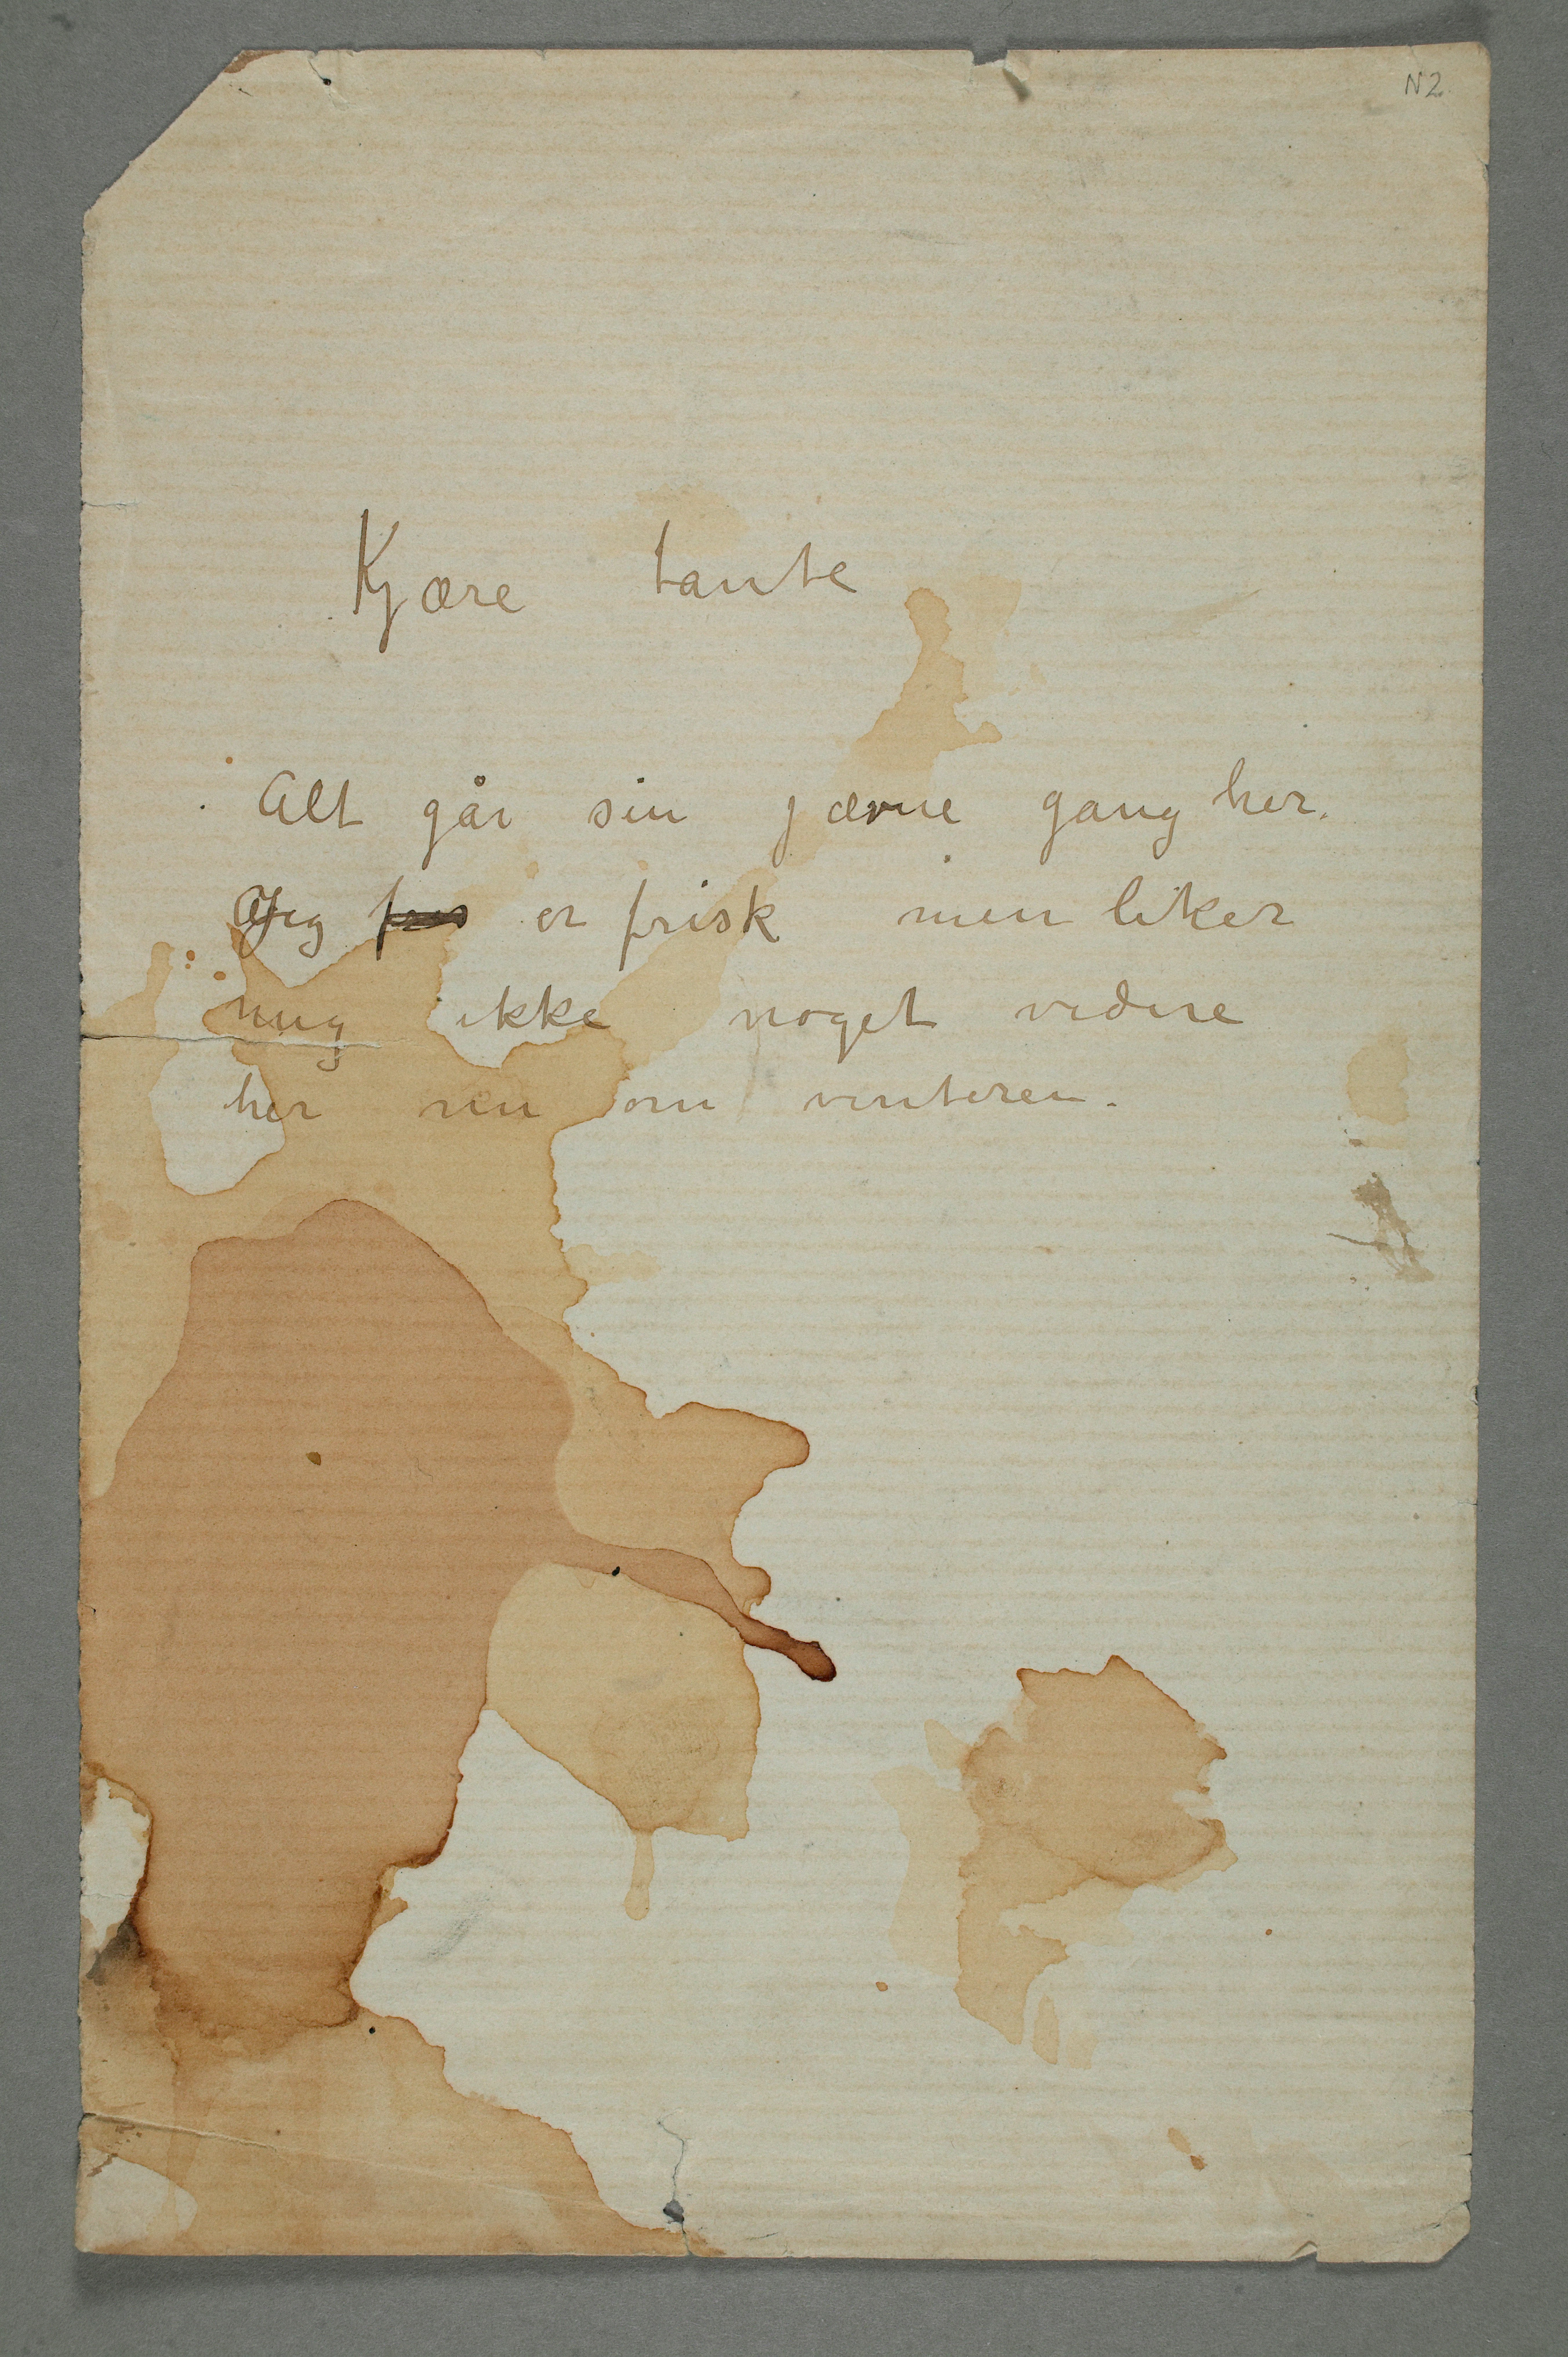 N2
Kjære tante
Alt går sin jævne gang her.
Jeg er frisk men liker
mig ikke noget videre
her nu om vinteren.